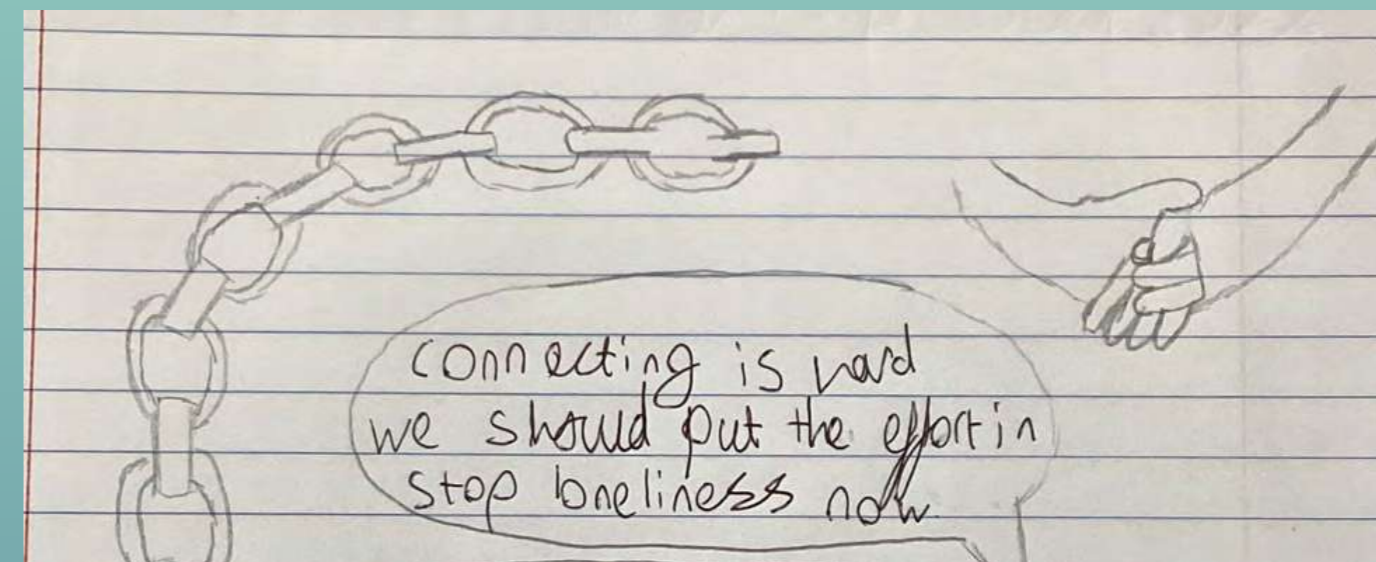 connecting is hard
we should put the effort in
stop loneliness now